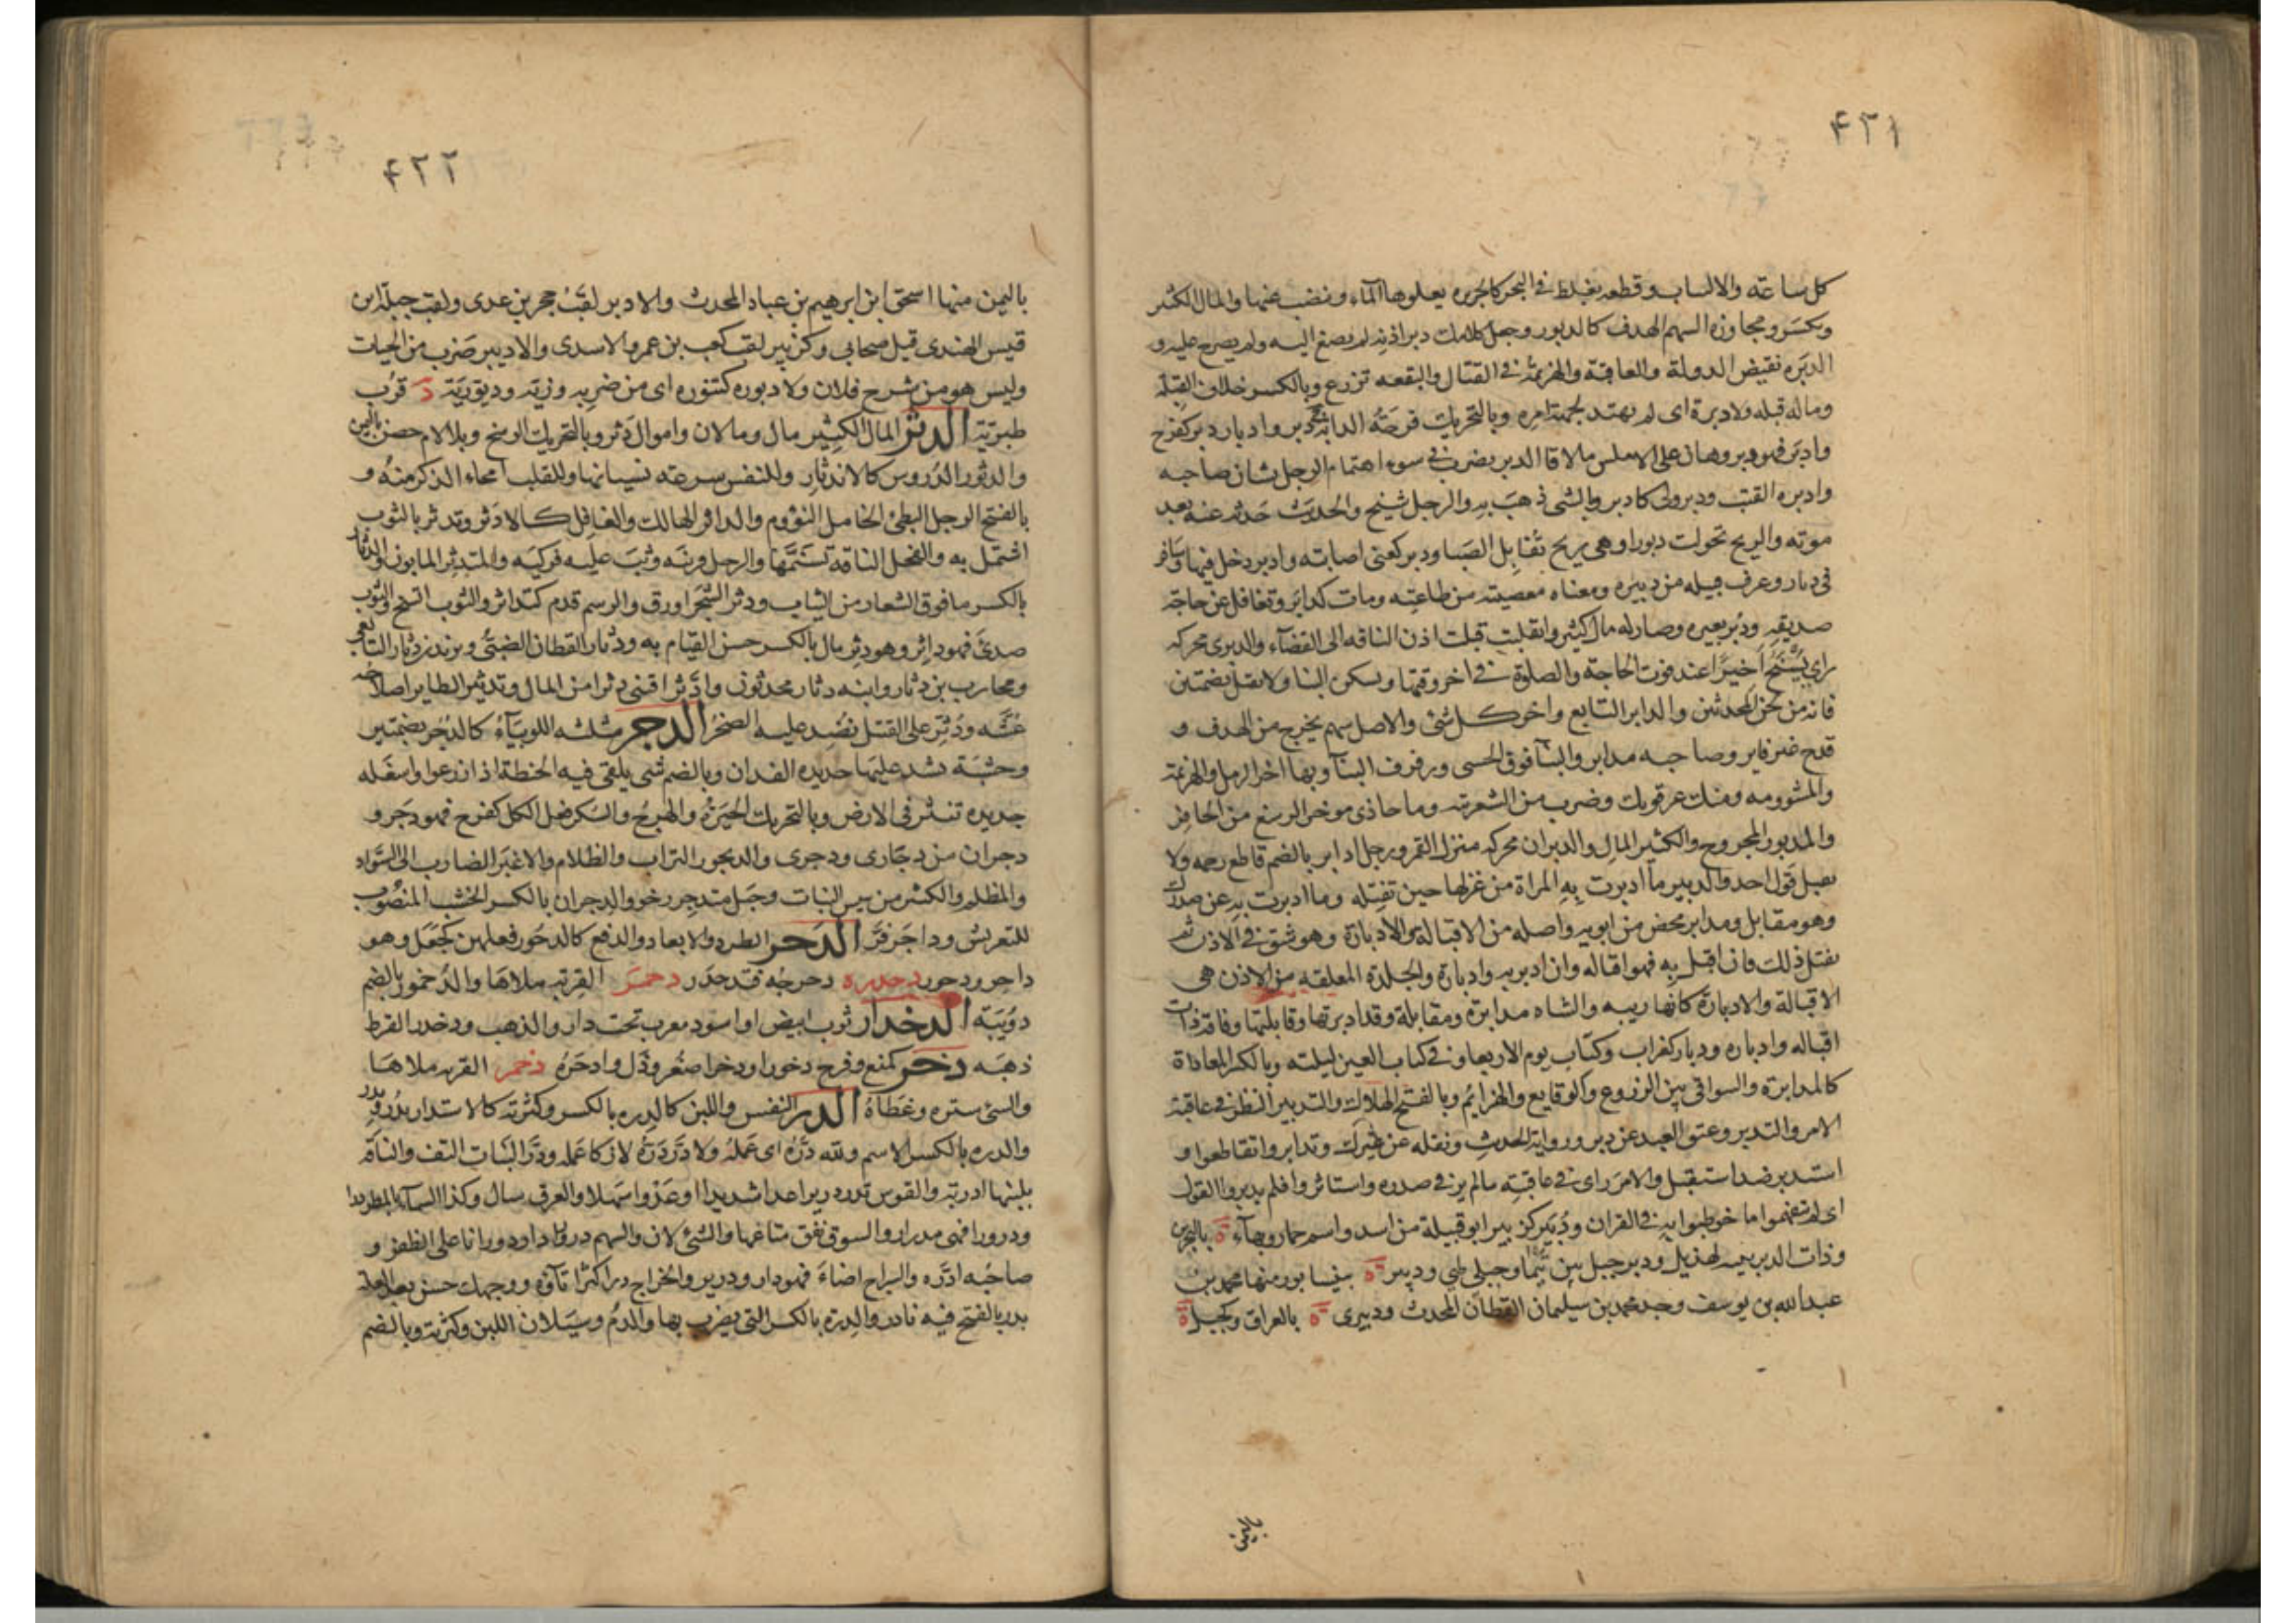 ٤٢١
كل ساعة والالساب وقطعه يغلظ في البحر كالجزيره يعلوها الماء وينضب عنها والمال الكثير
ويكسر ومجاوزة السهم الهدف كالدبور وجعل كلامك دبر اذنه لم يصغ اليه ولم يصرح عليه و
الدبره نقيض الدولة والعاقبة والهزيمة في القتال والبقعه تزرع وبالكسر خلاف القبلة
وماله قبله ولا دبرة اى لم يهتد لجهة امره وبالتحريك قرحة الدابة ج دبر وادبار دبر كفرح
وادبر فهو دبر وهان على الاملس ما لاقا الدبر يضرب في سوء اهتمام الرجل بشان صاحبه
وادبره القتب ودبر ولى كادبر وبالشى ذهب به والرجل شيخ والحديث حدثه عنه بعد
موته والريح تحولت دبورا وهى ريح تقابل الصبا ودبر كعنى اصابته وادبر دخل فيها وسافر
في دبار وعرف قبيله من دبيره ومعناه معصيته من طاعته ومات كدابر وتغافل عن حاجة
صديقه ودبر بعيره وصار له مال كثير وانقلبت قبلت اذن الناقه الى القفاء والدبرى محركه
راي يسنح اخيرا عند فوت الحاجة والصلوة في اخر وقتها ويسكن البا ولا يقل بضمتين
فانه من لحن المحدثين والدابر التابع واخر كل شى والاصل سهم يخرج من الهدف و
قدح غير فايز وصاحبه مدابر والبنا فوق الحسى ورفرف البناء وبها اخر الرمل والهزيمة
والمشوومه ومنك عرقوبك وضرب من الشغزبيه وما حاذى موخر الرسغ من الحافر
والمدبور المجروح والكثير المال والدبران محركه منزل القمر ورجل ادابر بالضم قاطع رحمه ولا
يقبل قول احد والدبير ما ادبرت به المراة من غزلها حين تفتله وما ادبرت به عن صدرك
وهو مقابل ومدابر محض من ابويه واصله من الاقبالة والادبارة وهو شق في الاذن ثم
يفتل ذلك فان اقبل به فهو اقاله وان ادبر به وادبارة والجلدة المعلقه من الاذن هى
الاقبالة والادبارة كانها زنمه والشاه مدابرة ومقابلة وقد ادبرتها وقابلتها وناقة ذات
اقباله وادباره ودبار كغراب وكتاب يوم الاربعا وفي كتاب العين ليلته وبالكسر المعاداة
كالمدابرة والسواقى بين الزروع والوقايع والهزايم وبالفتح الهلاك والتدبير النظر في عاقبة
الامر والتدبر وعتق العبد عن دبر ورواية الحديث ونقله عن غيرك وتدابروا تقاطعوا و
استدبر ضد استقبل والامر راى في عاقبته مالم ير في صدره واستاثر وافلم يدبروا القول
اى لم يتفهموا ما خوطبوا به في القران ودبير كزبير ابو قبيلة من اسد واسم حمار وبهاء ة بالبحرين
وذات الدبر ثنيه لهذيل ودبر جبل بين تيما وجبلى طى ودبير ة بنيسابور منها محمد بن
عبدالله بن يوسف وجد محمد بن سليمان القطان المحدث ودبيرى ة بالعراق وكجبل ة
باليمن
٤٢٢
باليمن منها اسحق ابن ابرهيم بن عباد المحدث والادبر لقب حجر بن عدى ولقب جبلة ابن
قيس الهندى قيل صحابى وكزبير لقب كعب بن عمرو الاسدى والاديبر ضرب من الحيات
وليس هو من شرح فلان ولا دبوره كتنوره اى من ضربه وزيه ودبورية د قرب
طبرية الدثر المال الكثير مال ومالان واموال دثر وبالتحريك الوسخ وبلا لام حصن باليمن
والدثور الدروس كالاندثار وللنفس سرعة نسيانها وللقلب امحاء الذكر منه و
بالفتح الرجل البطئ الخامل النؤوم والداثر الهالك والغافل كالادثر وتدثر بالثوب
اشتمل به والفحل الناقة تسنمها والرجل فرسه وثب عليه فركبه والمتدثر المابون والدثار
بالكسر ما فوق الشعار من الثياب ودثر الشجر اورق والرسم قدم كتداثر والثوب اتسخ والثوب
صدئ فهو داثر وهو دثر مال بالكسر حسن القيام به ودثار القطان الضبى ويزيد بن دثار التابعى
ومحارب بن دثار وابنه دثار محدثون وادثر اقتنى دثرا من المال وتدثير الطاير اصلاحه
عشه ودثر على القتيل نضد عليه الصخر الدجر مثلثه اللوبياء كالدجر بضمتين
وخشبة تشد عليها حديده الفدان وبالضم شى يلقى فيه الحنطة اذا زرعوا واسفله
حديده تنثر في الارض وبالتحريك الحيرة والهرج والسكر فعل الكل كفرح فهو دجر و
دجران من دجارى ودجرى والديجور التراب والظلام والاغبر الضارب الى السواد
والمظلم والكثير من يبيس النبات وحبل متدجر رخو والدجران بالكسر الخشب المنصوب
للتعريش وداجر فر الدحر الطرد والابعاد والدفع كالدحور فعلهن كجعل وهو
داحر ودحور دحدره دحرجه فتدحدر دحمر القربة ملاها والدحمور بالضم
دويبة الدخدار ثوب ابيض او اسود معرب تخت دار والذهب ودخدر القرط
ذهبه دخر كمنع وفرح دخورا ودخرا صغر وذل وادخره دخمر القربه ملاها
والشئ ستره وغطاه الدر النفس واللبن كالدره بالكسر وكثرته كالاستدرار يدر ويدر
والدره بالكسر الاسم ولله دره اى عمله ولا در دره لا زكا عمله ودر النبات التف والناقة
بلبنها ادرته والفرس تدر دريرا عدا شديدا او عدوا سهلا والعرق سال وكذا السماء بالمطر درا
ودرورا فهى مدرار والسوق نفق متاعها والشئ لان والسهم درورا دار دورانا على الظفر و
صاحبه ادره والسراج اضاء فهو دار ودرير والخراج درا كثر اتاؤه ووجهك حسن بعد العلة
يدر بالفتح فيه نادر والدرة بالكسر التى يضرب بها والدم وسيلان اللبن وكثرته وبالضم